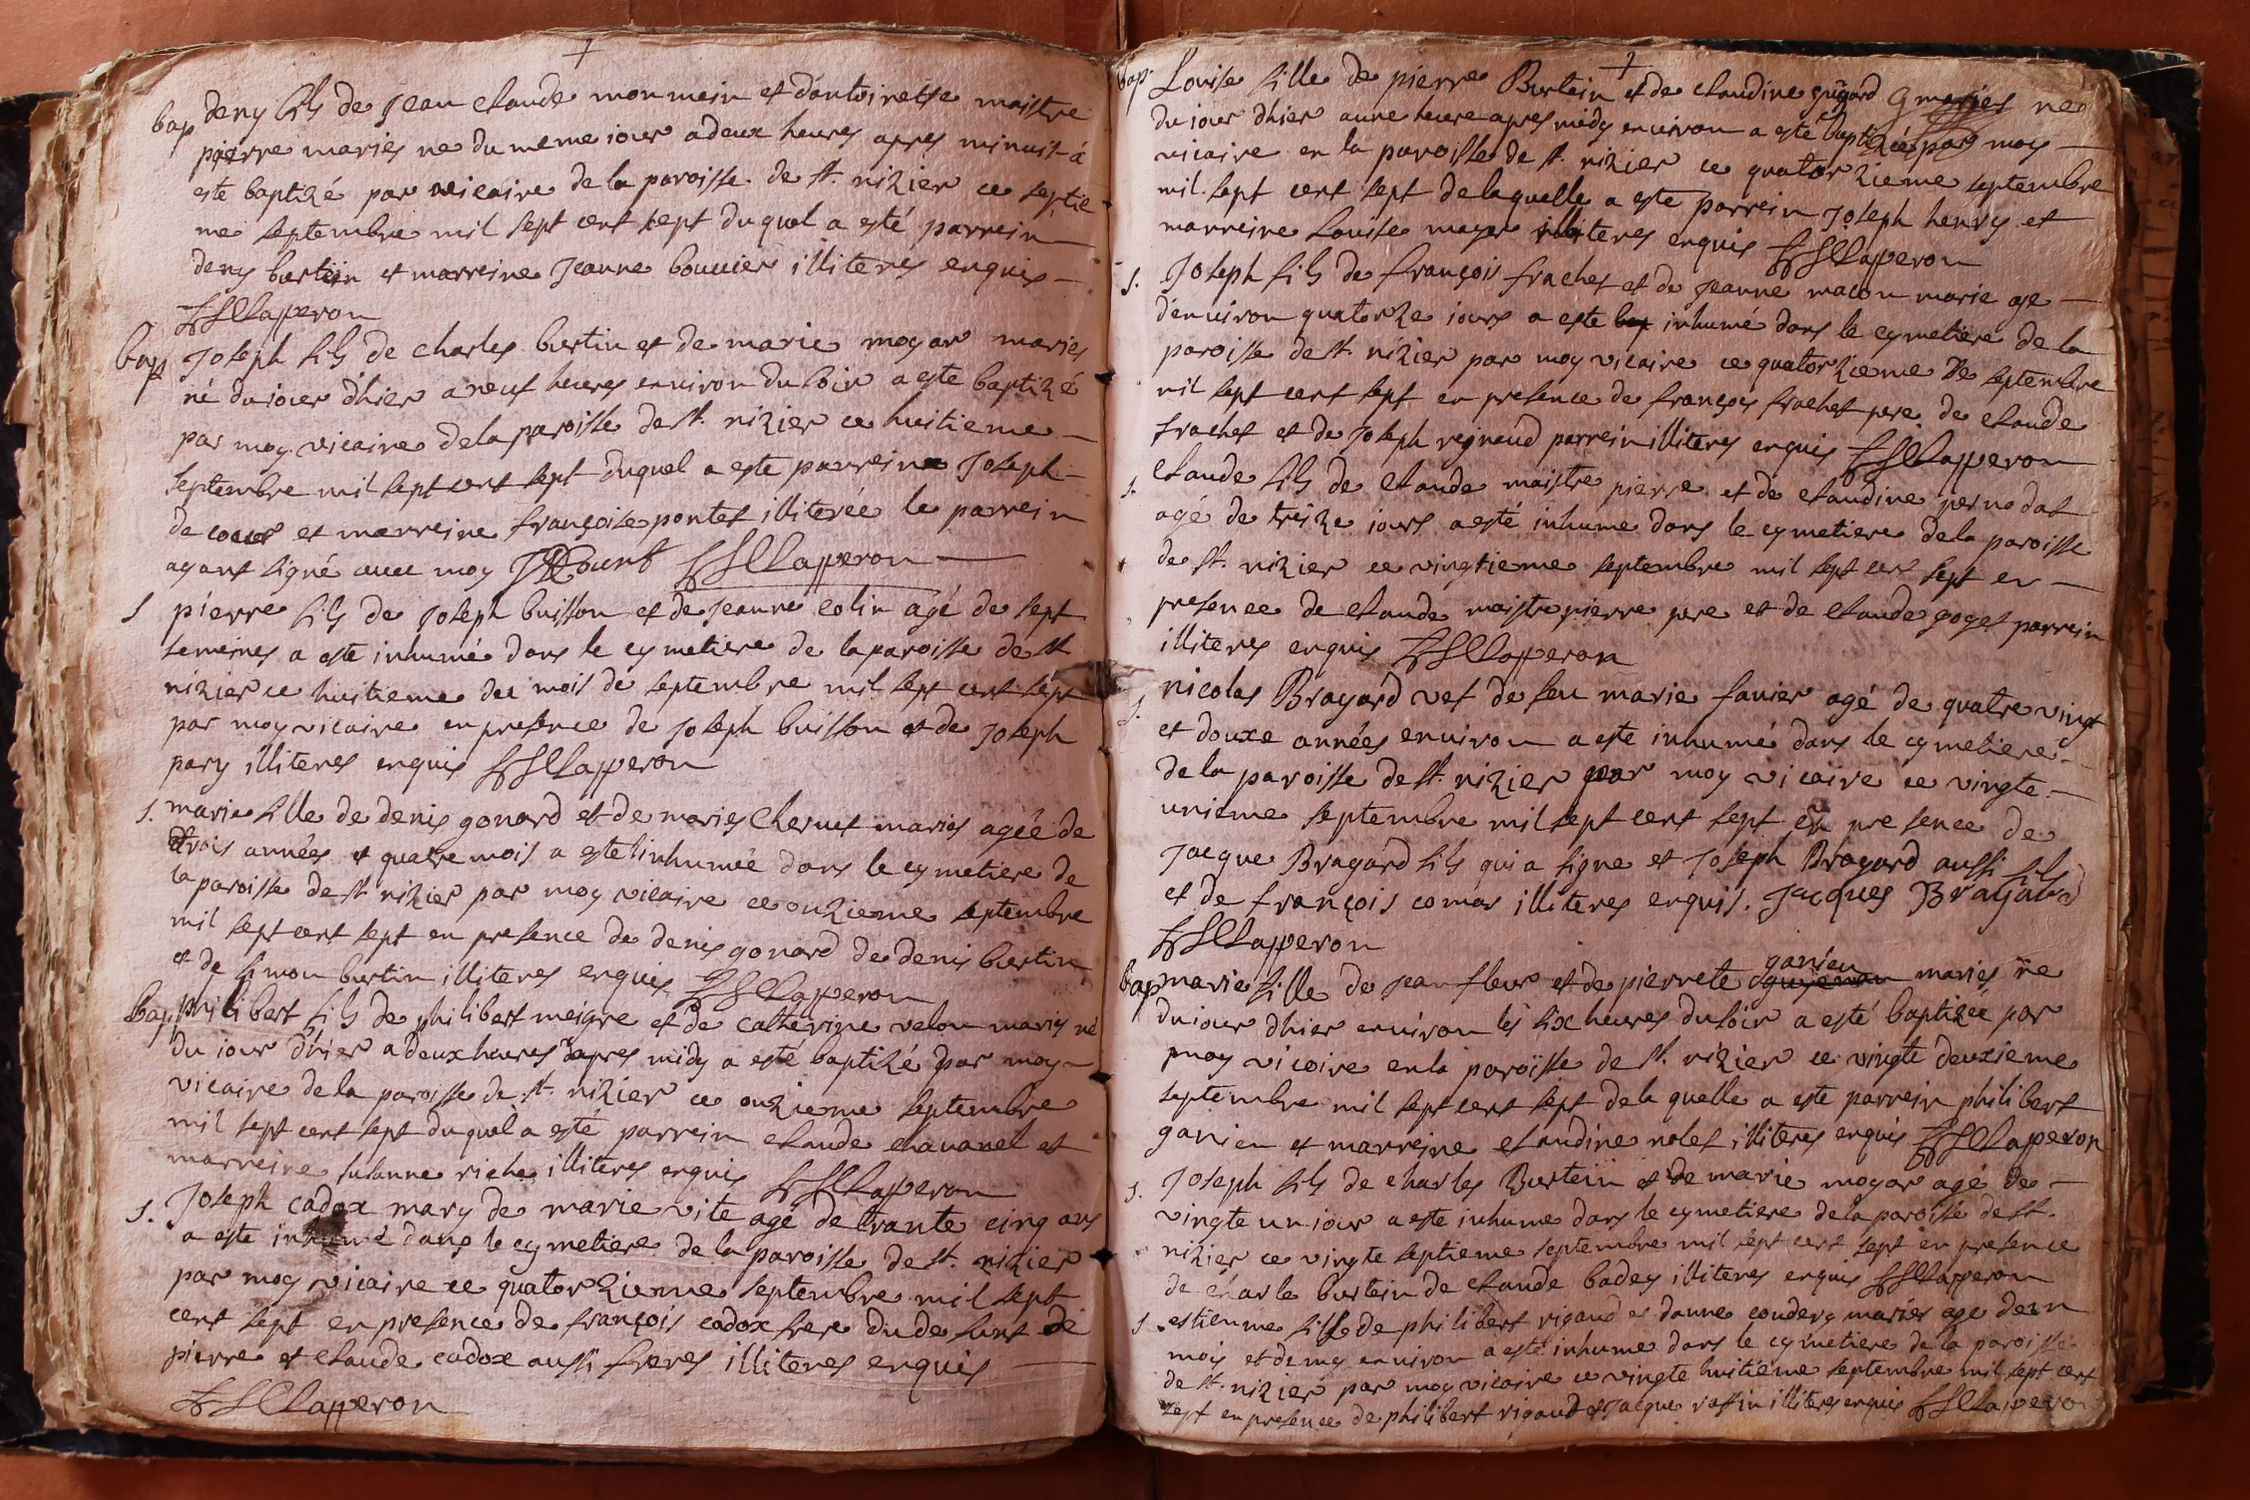 bap deny fils de Jean claude monmein et dantoinette maistre
pierre mariés ne du meme iour a deux heures apres minuit à
este baptizé par vicaire de la paroisse de st. nizier ce septie
me septembre mil sept cent sept duquel a esté parrein
deny burtein et marreine Jeanne bouvier illiteres enquis
Clapperon
bap Joseph fils de charles burtin et de marie moyar mariés
né du iour dhier a neuf heures environ du soir a este baptizé
par moy vicaire de la paroisse de st. nizier ce huitieme
septembre mil sept cent sept duquel a este parrein Joseph
de cour et marreine françoise pontet illiterée le parrein
ayant signé avec moy Clapperon
S pierre fils de Joseph buisson et de Jeanne colin agé de sept
semeines a esté inhumé dans le cymetiere de la paroisse de st
nizier ce huitieme du mois de septembre mil sept cent sept
par moy vicaire en presence de Joseph buisson et de Joseph
pary illiteres enquis Clapperon
S. marie fille de denis gonard et de marie Chervet mariés agée de
trois années et quatre mois a esté inhumée dans le cymetiere de
la paroisse de st nizier par moy vicaire ce onzieme septembre
mil sept cent sept en presence de denis gonard de denis burtin
et de simon burtin illiteres enquis Clapperon
bap philibert fils de philibert meigre et de catherine velon mariés né
du iour dhier a deux heures dapres midy a esté baptizé par moy
vicaire de la paroisse de st. nizier ce onzieme septembre
mil sept cent sept duquel a esté parrein claude chavanel et
marreine susanne riche illiteres enquis Clapperon
S. Joseph cadox mary de marie vite agé de trante cinq ans
a este inhumé dans le cymetiere de la paroisse de st. nizier
par moy vicaire ce quatorzieme septembre mil sept
cent sept en presence de françois cadox frere du defunt de
pierre et claude cadox aussi freres illiteres enquis
Clapperon
bap Louise fille de pierre Burtein et de claudine gonard mariés nee
du iour dhier a une heure apres midy environ a esté baptizée par moy
vicaire en la paroisse de st. nizier ce quatorzieme septembre
mil sept cent sept de laquelle a este parrein Joseph henry et
marreine Louise moyar illiteres enquis Clapperon
S. Joseph fils de françois frachet et de Jeanne macon marie age
denviron quatorze iours a este bap inhumé dans le cymetiere de la
paroisse de st. nizier par moy vicaire ce quatorzieme de septembre
mil sept cent sept en presence de françois frachet pere de claude
frachet et de Joseph regnaud parrein illiteres enquis Clapperon
S. claude fils de claude maistre pierre et de claudine pernodat
agé de treize iours a esté inhume dans le cymetiere de la paroisse
de st. nizier ce vingtieme septembre mil sept cent sept en
presence de claude maistre pierre pere et de claude goget parrein
illiteres enquis Clapperon
S. nicolas Brayard vef de feu marie favier agé de quatre vingt
et douxe années environ a este inhumé dans le cymetiere
de la paroisse de st. nizier par moy vicaire ce vingte
unieme septembre mil sept cent sept en presence de
Jacque Brayard fils qui a signe et Joseph Brayard aussi fils
et de françois comas illiteres enquis. Jacques Brayard
Clapperon
bap marie fille de Jean fleur et de pierrete ganieu mariés ne
du iour dhier environ les six heures du soir a esté baptizée par
moy vicaire en la paroisse de st. nizier ce vingte deuxieme
septembre mil sept cent sept de la quelle a este parrein philibert
ganieu et marreine claudine nolet illiteres enquis Clapperon
S. Joseph fils de charles Burtein et de marie moyar agé de
vingte un iour a este inhume dans le cymetiere de la paroisse de st.
nizier ce vingte septieme septembre mil sept cent sept en presence
de charle burtein de claude badey illiteres enquis Clapperon
S. estienne fils de philibert rigaud et danne coudery mariés age dun
mois et demy environ a esté inhume dans le cymetiere de la paroisse
de st. nizier par moy vicaire ce vingte huitieme septembre mil sept cent
sept en presence de philibert rigaud et Jacque raffin illiteres enquis Clapperon